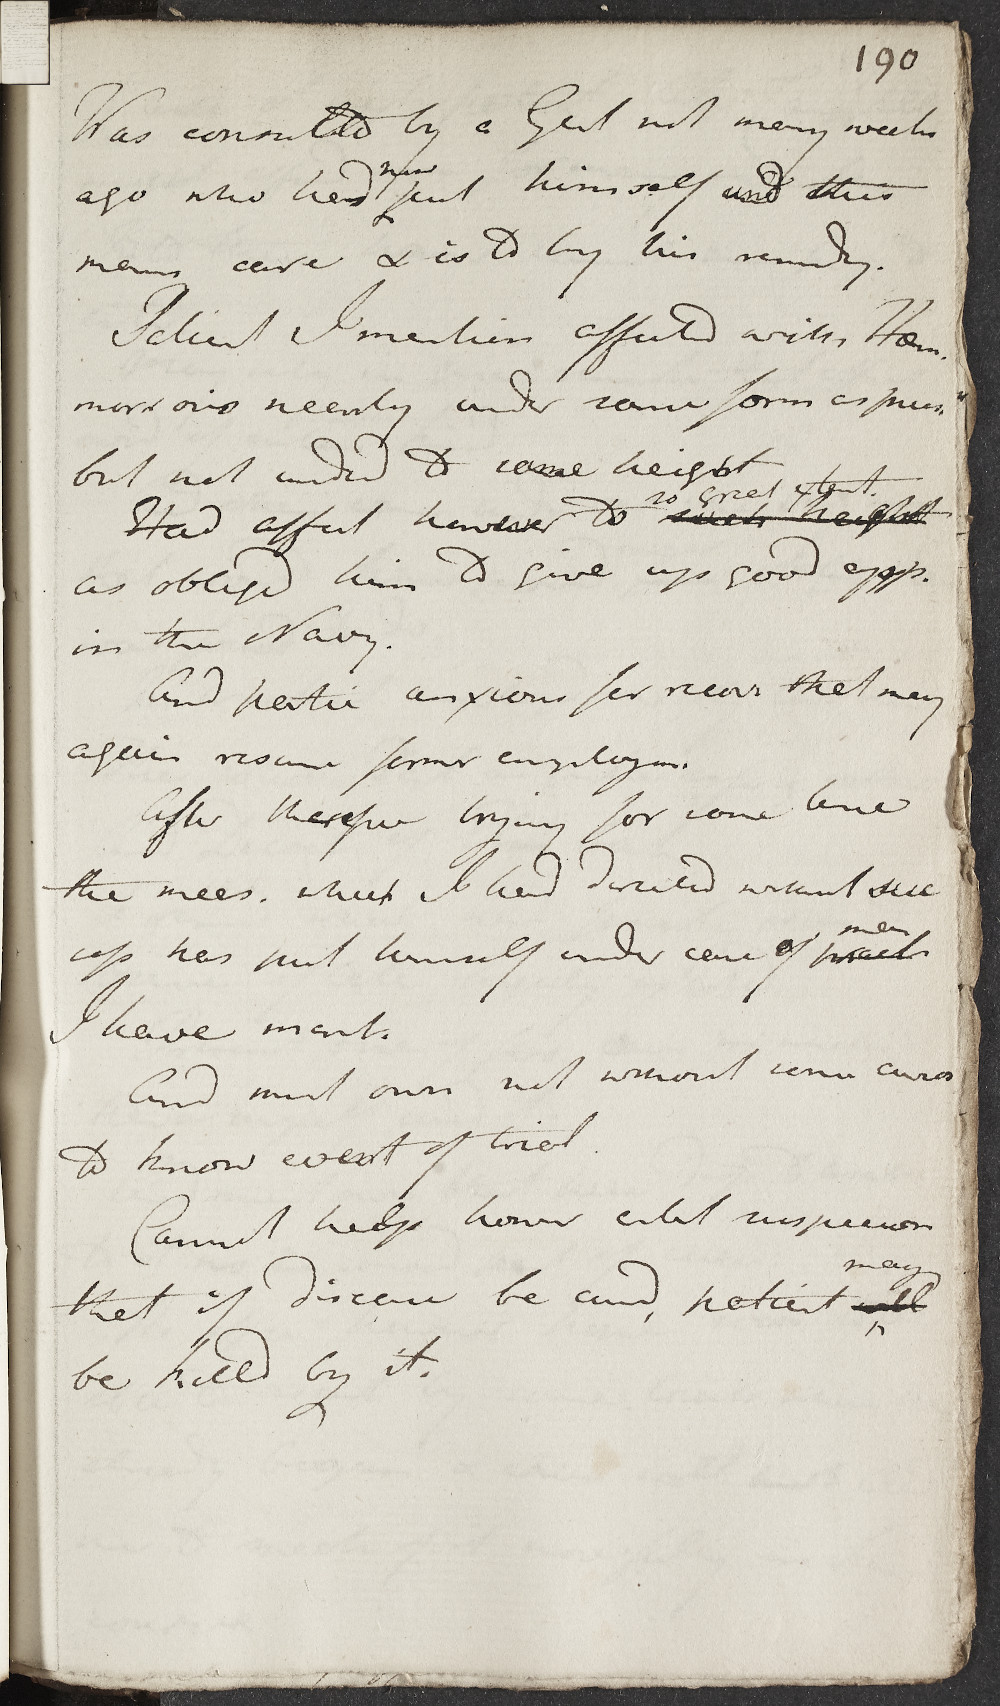 190
Was consulted by a Gent not many weeks
ago who had now put himself und this
mans care & is to try his remedy.
Patient I mention affected with Hem.
morrois nearly under same form as pres.
but not indeed to same height
Had affect however to such height so great extent.
as obliged him to give up good app.
in the Navy.
And partic anxious for recov that may
again resume former employm.
After therefore trying for some time
the meas. which I had directed without succ
ess has put himself under care of practr man
I have ment.
And must own not without some curios
to know event of trial.
Cannot help howr entert suspicion
that if disease be curd, patient will may
be killd by it.